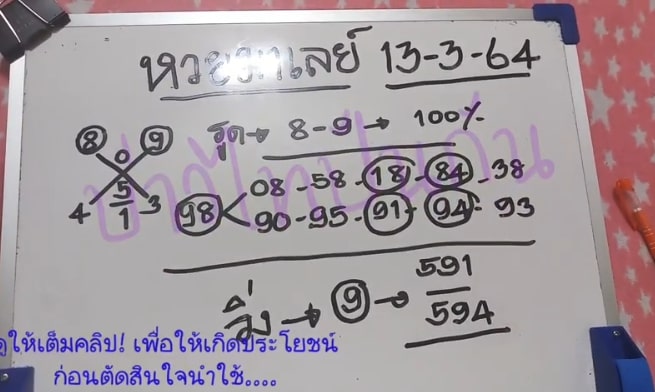 หวยมาเลย์ 13-3-64
รูด→ 8-9 → 100%
8 9
0
5
4 1 3
98 < 08-58-18-84-38
90-95-91-94-93
วิ่ง → 9 → 591
594
ดูให้เต็มคลิป! เพื่อให้เกิดประโยชน์
ก่อนตัดสินใจนำใช้....